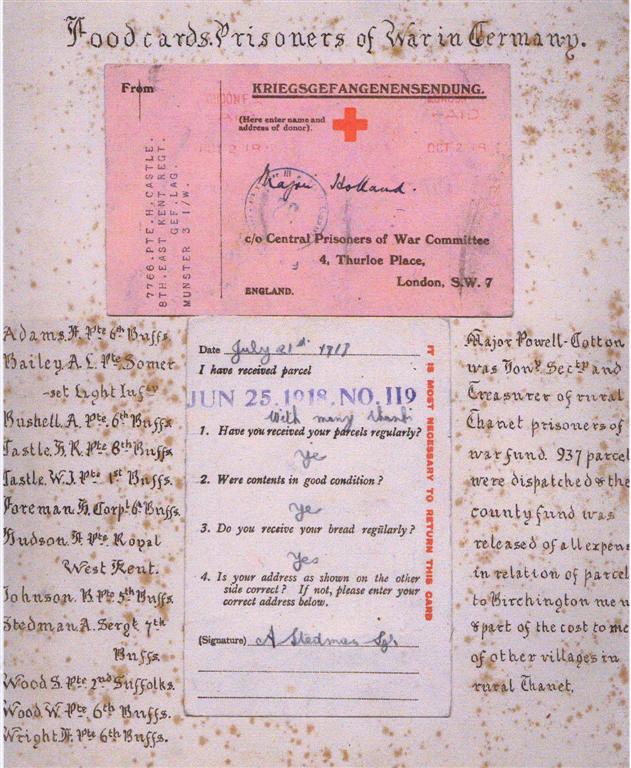 Food cards. Prisoners of War in Germany.
From
KRIEGSGEFANGENENSENDUNG.
(Here enter name and
address of donor).
Major Holland.
c/o Central Prisoners of War Committee
4, Thurloe Place,
London, S.W. 7
ENGLAND.
7766. PTE. H. CASTLE.
8TH. EAST KENT REGT.
GEF. LAG.
MUNSTER 3 I/W.
PAID
OCT 2 18
Adams. H. Pte 6th Buffs
Bailey. A. L. Pte Somer
-set Light Infy
Bushell. A. Pte 6th Buffs
Castle. H. R. Pte 8th Buffs
Castle. W. J. Pte 1st Buffs.
Foreman. H. Corpl 6th Buffs.
Hudson. H. Pte Royal
West Kent.
Johnson. R. Pte 5th Buffs
Stedman. A. Sergt 7th
Buffs.
Wood. S. Pte 2nd Suffolks.
Wood. W. Pte 6th Buffs.
Wright. H. Pte 6th Buffs.
Date July 21st 1918
I have received parcel
JUN 25. 1918. NO. 119
With many thanks
1. Have you received your parcels regularly?
Yes
2. Were contents in good condition?
Yes
3. Do you receive your bread regularly?
Yes
4. Is your address as shown on the other
side correct? If not, please enter your
correct address below.
(Signature) A Stedman Sgt
IT IS MOST NECESSARY TO RETURN THIS CARD
Major Powell-Cotton
was Hony Secty and
Treasurer of rural
Thanet prisoners of
war fund. 937 parcel
were dispatched & the
county fund was
released of all expens
in relation of parcel
to Birchington men
& part of the cost to me
of other villages in
rural Thanet.